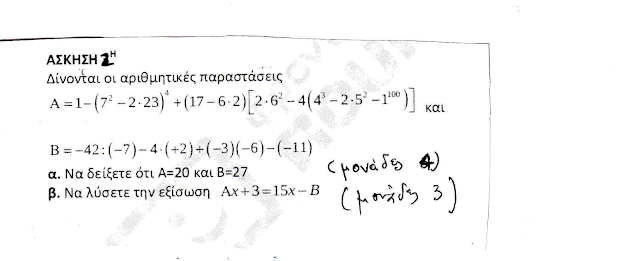 ΑΣΚΗΣΗ 2Η
Δίνονται οι αριθμητικές παραστάσεις
A = 1 − (7² − 2·23)⁴ + (17 − 6·2)[2·6² − 4(4³ − 2·5² − 1¹⁰⁰)] και
B = −42:(−7) − 4·(+2) + (−3)(−6) − (−11)
α. Να δείξετε ότι Α=20 και Β=27 (μονάδες 4)
β. Να λύσετε την εξίσωση Ax + 3 = 15x − B (μονάδες 3)